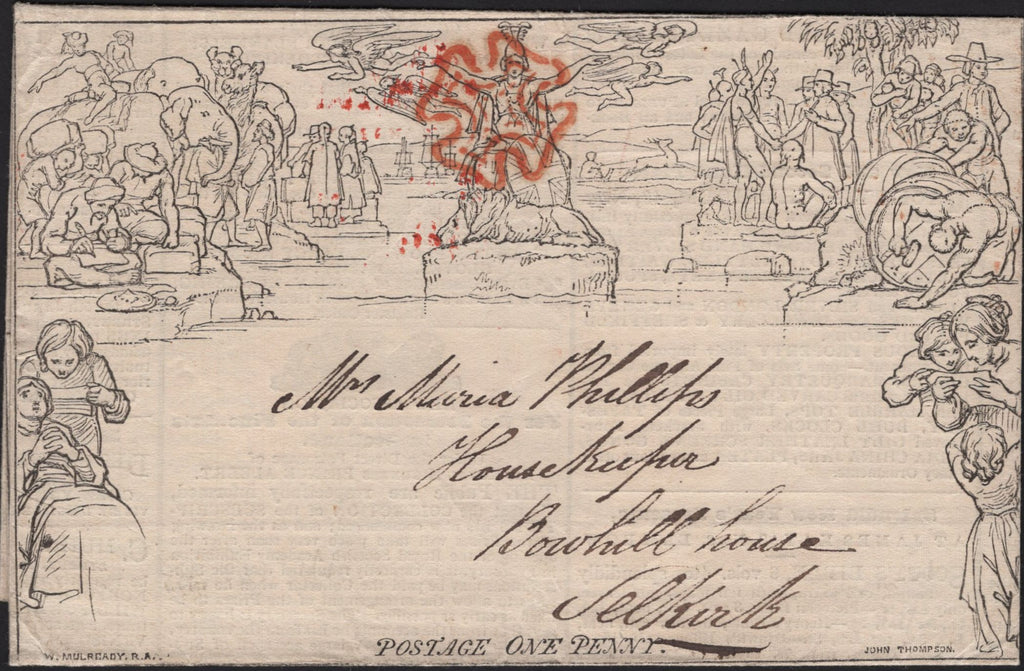 Mrs Maria Phillips
Housekeeper
Bowhill house
Selkirk
POSTAGE ONE PENNY.
W. MULREADY. R.A.
JOHN THOMPSON.